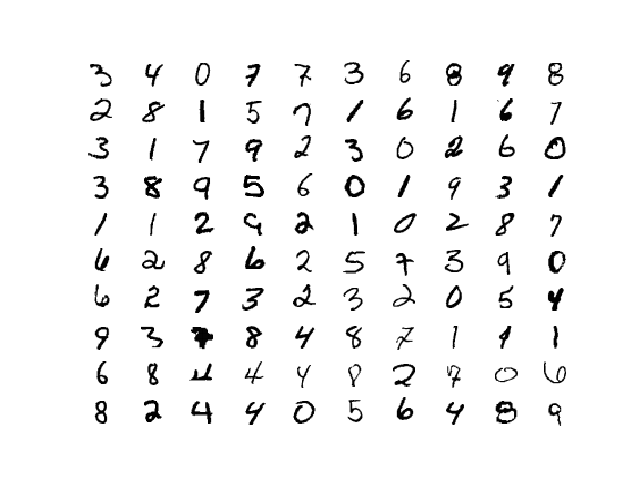 3 4 0 7 7 3 6 8 9 8
2 8 1 5 7 1 6 1 6 7
3 1 7 9 2 3 0 2 6 0
3 8 9 5 6 0 1 9 3 1
1 1 2 9 2 1 0 2 8 7
6 2 8 6 2 5 7 3 9 0
6 2 7 3 2 3 2 0 5 4
9 3 7 8 4 8 7 1 1
6 8 4 4 4 8 2 7 0 6
8 2 4 4 0 5 6 4 8 9